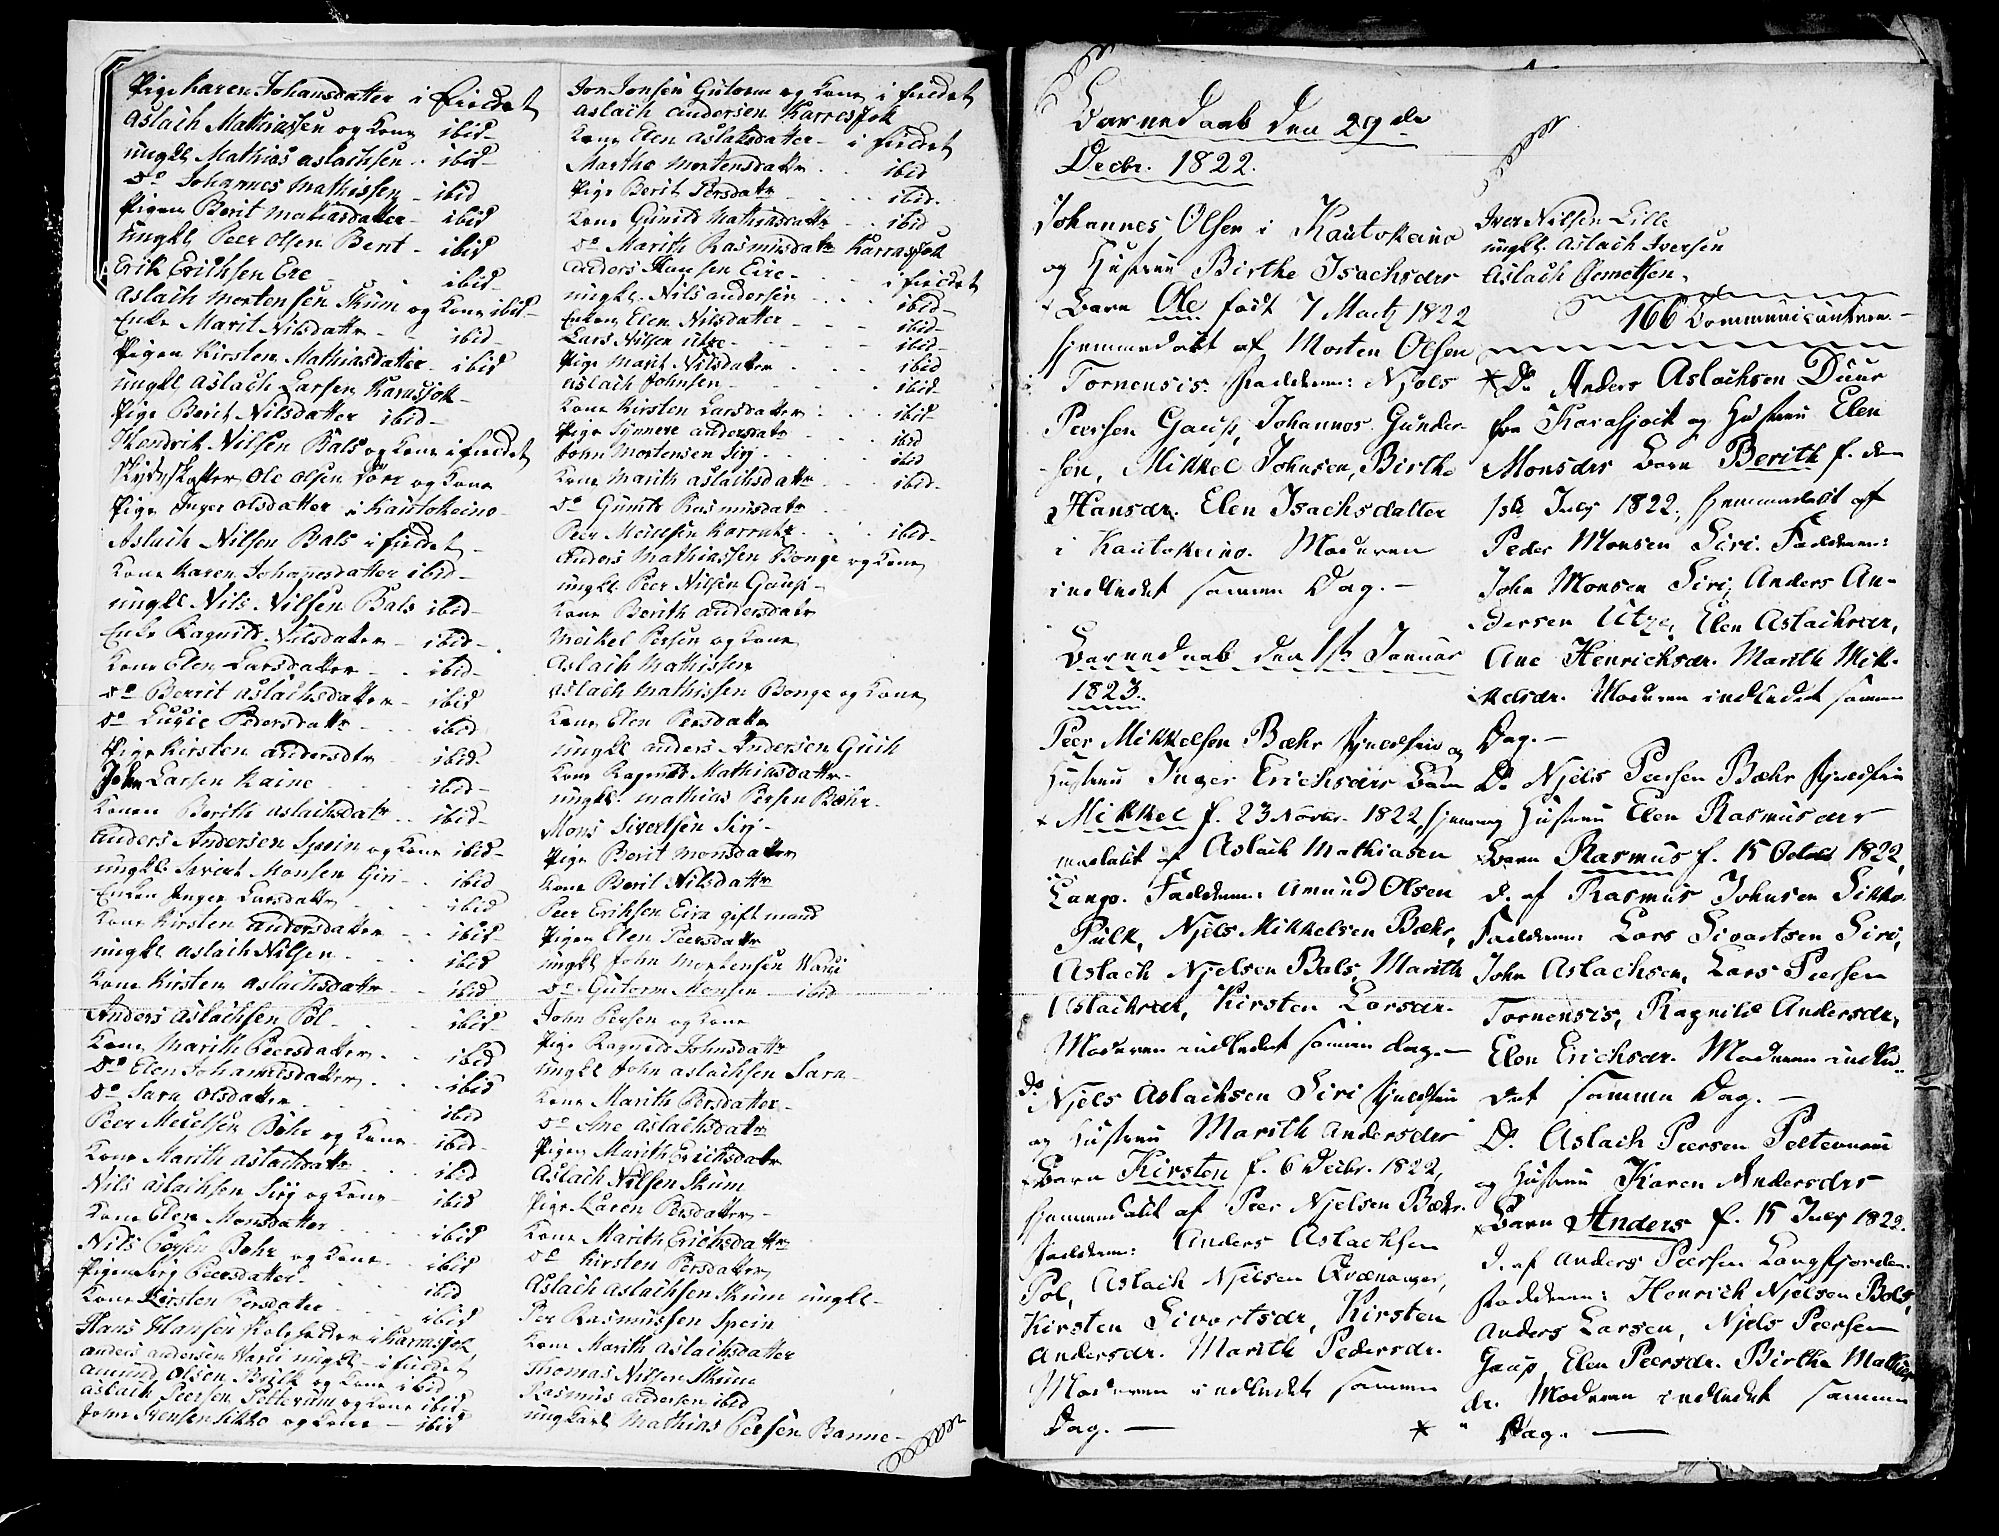 Pige Karen Johansdatter i fieldet
Aslach Mathiassen og Kone ibid-
ungkl Mathias Aslachsen .. ibid-
Do Johannes Mathissen - ibid
Pigen Berit Mathiasdatter - ibid
ungkl Peer Olsen Bent - ibid
Erik Erichsen Ere - ibid-
Aslach Mortensen Skum og Kone ibid-
Enke Marit Nilsdattr - ibid-
Pigen Kirsten Mathiasdatter - ibid
ungkl Aslach Larsen Karasjok-
Pige Berit Nilsdatter ibid-
Hendrik Nilsen Bals og Kone i fieldet
Skydsskaffer Ole Olsen og Kone
Pige Inger Olsdatter i Kautokeino-
Aslach Nilsen Bals i fieldet-
Kone Karen Johannesdatter ibid-
ungkl Nils Nilsen Bals ibid-
Enke Ragnild Nilsdatter - ibid-
Kone Elen Larsdatter - . ibid-
Do Berrit Aslachsdatter - ibid
Do Pedersdattr - . . ibid-
Pige Kirsten Andersdtr - . ibid-
John Larsen Kaine . . . ibid-
Konen Berith Aslachsdatr . . ibid-
Anders Andersen Spein og Kone ibid-
ungkl. Sivert Monsen Giri - . ibid
Enken Inger Larsdattr . . ibid
Kone Kirsten Andersdatter - . ibid-
ungkl Aslach Nilsen - . . ibid
Kone Kirsten Aslachsdattr - . ibid
Anders Aslachsen Pol - . . ibid-
Kone Marith Peersdatter - . ibid
Do Elen Johannisdatter - . . ibid
Do Sara Olsdatter - . . ibid
Peer Meielsen Bæhr og Kone - ibid-
Kone Marith Aslachsdattr . . ibid
Nils Aslachsen Sirj og Kone - ibid
Kone Elen Monsdatter . . ibid
Nils Persen Bæhr og Kone - . ibid
Pigen Sirj Peersdatter - . . ibid
Kone Kirsten Persdatter . . . ibid
Hans Hansen i Karrasjok
Anders Andersen Warsi ungkl - i fieldet
Amund Olsen og Kone ibid
Aslach Peersen Pelterum og Kone ibid
John Ivensen Sikko og Kone - ibid
Jon Jonsen Gutorm og Kone i fieldet
Aslach Andersen Karresjok
Kone Elen Aslaksdatter - i fieldet
Marthe Mortensdattr . . ibid
Pige Berit Persdattr . . . ibid.
Kone Gunild Mathiasdattr . . ibid
Do Marith Rasmusdatr Karrasjok
Anders Hansen Eire - . . i fieldet
ungkl. Nils Andersen . . . ibid-
Enken Elen Nilsdatter - . . ibid-
Lars Nilsen Utze - . . . ibid-
Pige Marit Nilsdatter . . . ibid
Aslach Johnsen - . . . ibid-
Kone Kirsten Larsdatter . . . ibid-
Pige Synnere Andersdatr . . . ibid
John Mortensen Sirj - . . . ibid
Kone Marith Aslachsdattr . . ibid-
Do Gunild Rasmusdatr
Peer Meielsen . . . ibid-
Anders Mathiassen Bonge og Kone
ungkl Peer Nilsen Gaup -
Kone Berith Andersdatr
Meikel Persen og Kone
Aslach Mathissen
Aslach Mathissen Bonge og Kone
Kone Elen Persdattr
ungkl Anders Andersen
Kone Ragnild Mathiasdattr-
ungkl. Mathias Persen Bæhr-
Mons Sivertsen Sirj-
Pige Berit Monsdatter
Kone Berit Nilsdattr
Peer Eriksen Eira gift mand
Pigen Elen Peersdattr
ungkl John Mortensen Warsi
Do Gutorm Monsen - ibid
John Persen og Kone
Pige Ragnild Johnsdattr
ungkl John Aslachsen Sara -
Kone Marith Persdatter-
Do Ane Aslachsdatr
Pigen Marith Erichsdatr
Aslach Nilsen Skum
Pige Karen Persdatter-
Kone Marith Erichsdattr
Do Kirsten Persdatter
Aslach Aslachsen Skum ungkl-
Per Rasmussen Spein
Kone Marith Aslachsdatter
Thomas Nilsen Skum
Rasmus Andersen ibid
ungkarl Mathias Persen Banne-
Barnedaab den 29de
Decbr. 1822.
Johannes Olsen i Kautokeino
og Hustrue Birthe Isachsdr
Barn Ole født 7 Martz 1822
hjemmedøbt af Morten Olsen
Tornensis. Faddere: Njels
Peersen Gaup, Johannes Gunder-
sen, Mikkel Johnsen, Birthe
Hansdr. Elen Isachsdatter
i Kautokeino. Moderen
indledet samme Dag. -
Barnedaab den 1ste Januar
1823.
Peer Mikkelsen Bæhr fjeldfin og
Hustrue Inger Erichsdr Barn
Mikkel f. 23 Novbr. 1822, hjem
medøbt af Aslach Mathiasen
Lango. Faddere: Amund Olsen
Pulk, Njels Mikkelsen Bæhr,
Aslach Njelsen Bals, Marith
Aslachsdr, Kirsten Larsdr.
Moderen indledet samme dag. -
Do Njels Aslachsen Siri fjeldfin
og Hustrue Marith Andersdr
Barn Kirsten f. 6 Decbr. 1822,
hjemmedøbt af Peer Njelsen Bæhr.
Faddere: Anders Aslachsen
Pol, Aslach Njelsen Qvænanger,
Kirsten Sivertsdr, Kirsten
Andersdr. Marith Pedersdr.
Moderen indledet samme
Dag. -
Iver Nilsen Lille
ungkl. Aslach Iversen
Aslach Clemetsen.
166 Communicantere -
Do Anders Aslachsen Duur
fra Karasjock og Hustrue Elen
Monsdr Barn Berith f. den
1ste July 1822, hjemmedøbt af
Peder Monsen Siri. Faddere:
John Monsen Siri, Anders An-
dersen Utze, Elen Aslachsdr,
Ane Henrichsdr. Marith Mik-
kelsdr. Moderen indledet samme
Dag. -
Do Njels Peersen Bæhr fjeldfin
og Hustrue Elen Rasmusdr
Barn Rasmus f. 15 Octobr 1822,
d. af Rasmus Johnsen Sikko.
Faddere: Lars Sivertsen Siri,
John Aslachsen, Lars Peersen
Tornensis, Ragnild Andersdr,
Elen Erichsdr. Moderen indle-
det samme Dag. -
Do Aslach Peersen Pelterum
og Hustrue Karen Andersdr
Barn Anders f. 15 July 1822.
d. af Anders Peersen Langfjorden.
Faddere: Henrich Njelsen Bals,
Anders Larsen, Njels Peersen
Gaup, Elen Peersdr. Birthe Mathies
dr. Moderen indledet samme
Dag. -